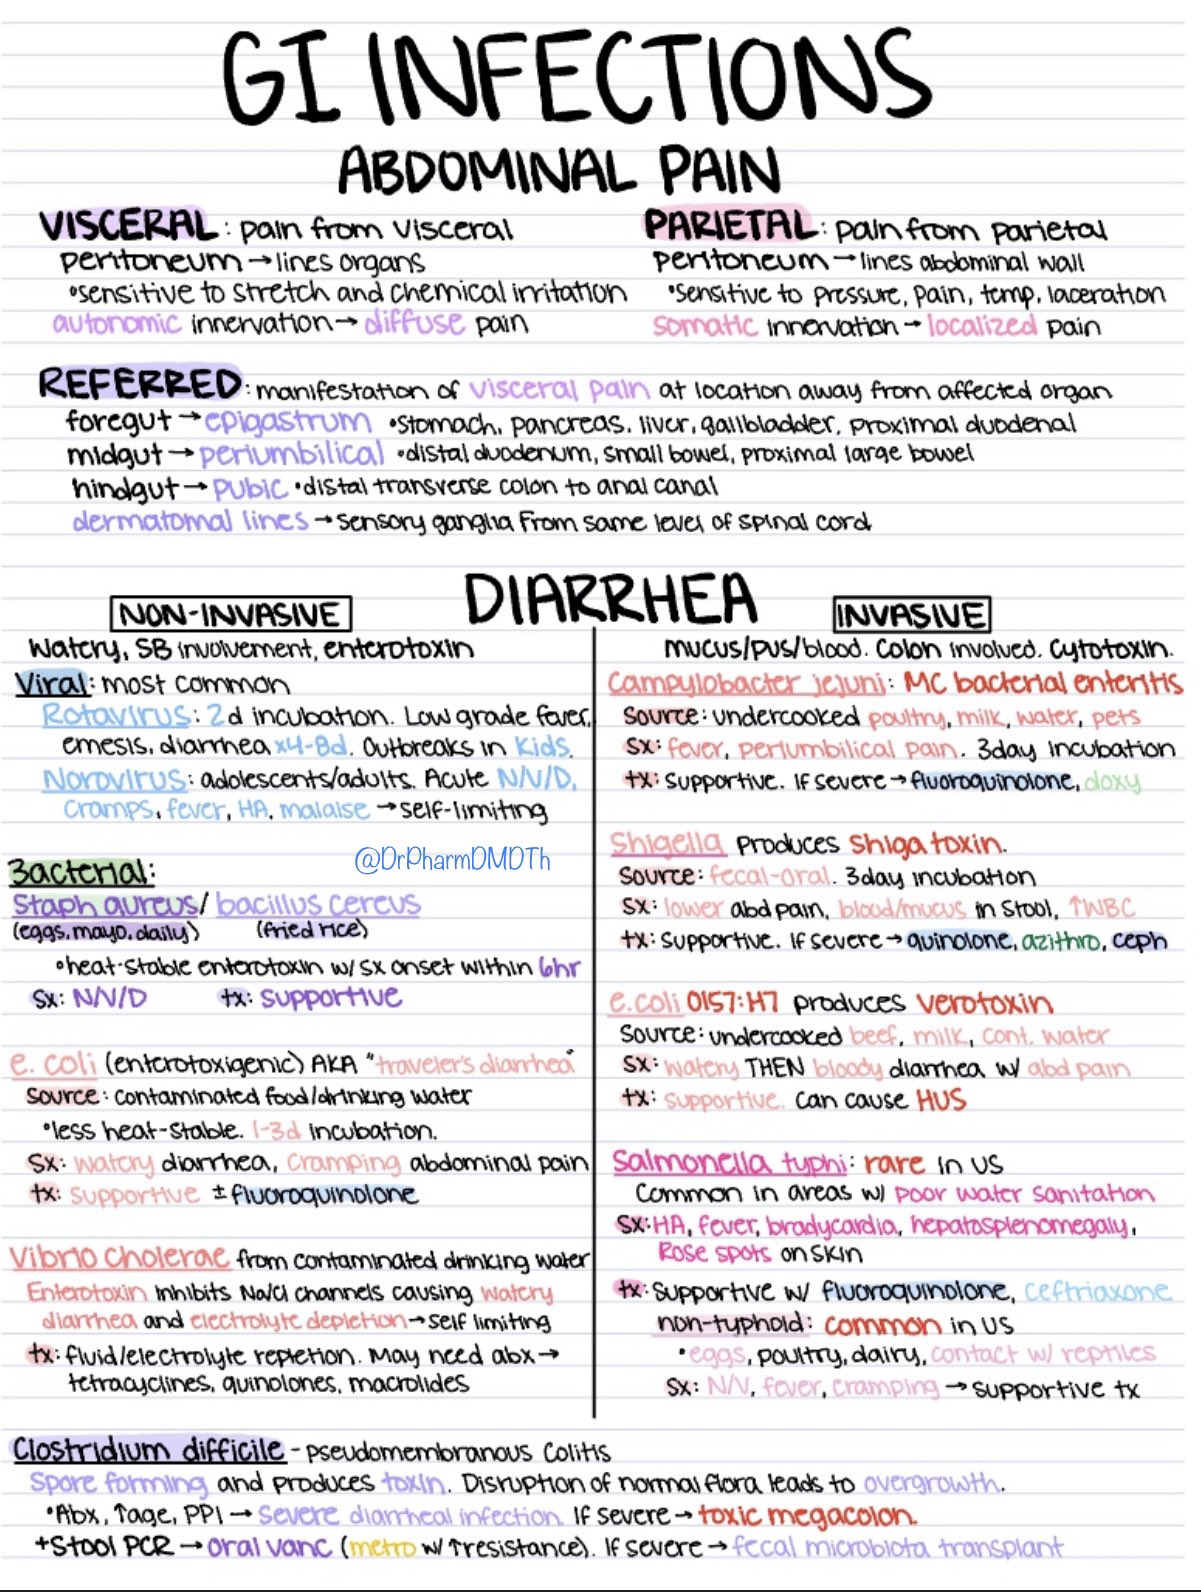 GI INFECTIONS
ABDOMINAL PAIN
VISCERAL: pain from visceral
peritoneum → lines organs
•sensitive to stretch and chemical irritation
autonomic innervation → diffuse pain
PARIETAL: pain from parietal
peritoneum → lines abdominal wall
•sensitive to pressure, pain, temp, laceration
somatic innervation → localized pain
REFERRED: manifestation of visceral pain at location away from affected organ
foregut → epigastrum •stomach, pancreas, liver, gallbladder, proximal duodenal
midgut → periumbilical •distal duodenum, small bowel, proximal large bowel
hindgut → pubic •distal transverse colon to anal canal
dermatomal lines → sensory ganglia from same level of spinal cord
DIARRHEA
NON-INVASIVE
Watery, SB involvement, enterotoxin
Viral: most common
Rotavirus: 2d incubation. Low grade fever,
emesis, diarrhea x4-8d. Outbreaks in kids.
Norovirus: adolescents/adults. Acute N/V/D,
cramps, fever, HA, malaise → self-limiting
@DrPharmDMDTh
Bacterial:
Staph aureus/ bacillus cereus
(eggs, mayo, daily) (fried rice)
•heat-stable enterotoxin w/ sx onset within 6hr
Sx: N/V/D tx: supportive
e. coli (enterotoxigenic) AKA "traveler's diarrhea"
Source: contaminated food/drinking water
•less heat-stable. 1-3d incubation.
Sx: watery diarrhea, cramping abdominal pain
tx: supportive ± fluoroquinolone
Vibrio cholerae from contaminated drinking water
Enterotoxin inhibits Na/Cl channels causing watery
diarrhea and electrolyte depletion → self limiting
tx: fluid/electrolyte repletion. May need abx →
tetracyclines, quinolones, macrolides
INVASIVE
mucus/pus/blood. Colon involved. Cytotoxin.
Campylobacter jejuni: MC bacterial enteritis
Source: undercooked poultry, milk, water, pets
Sx: fever, periumbilical pain. 3day incubation
tx: supportive. If severe → fluoroquinolone, doxy
Shigella produces shiga toxin.
Source: fecal-oral. 3day incubation
Sx: lower abd pain, blood/mucus in stool, ↑WBC
tx: supportive. If severe → quinolone, azithro, ceph
e.coli O157:H7 produces verotoxin
Source: undercooked beef, milk, cont. water
Sx: watery THEN bloody diarrhea w/ abd pain
tx: supportive. Can cause HUS
Salmonella typhi: rare in US
Common in areas w/ poor water sanitation
Sx: HA, fever, bradycardia, hepatosplenomegaly,
Rose spots on skin
tx: supportive w/ fluoroquinolone, ceftriaxone
non-typhoid: common in US
•eggs, poultry, dairy, contact w/ reptiles
Sx: N/V, fever, cramping → supportive tx
Clostridium difficile - pseudomembranous colitis
Spore forming and produces toxin. Disruption of normal flora leads to overgrowth.
•Abx, ↑age, PPI → severe diarrheal infection. If severe → toxic megacolon.
+Stool PCR → oral vanc (metro w/ ↑resistance). If severe → fecal microbiota transplant